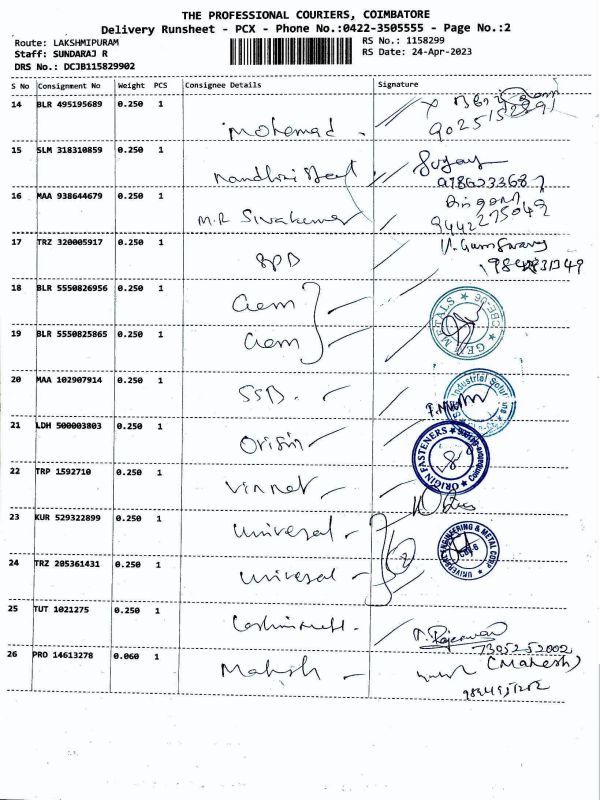 THE PROFESSIONAL COURIERS, COIMBATORE
Delivery Runsheet - PCX - Phone No.:0422-3505555 - Page No.:2
Route: LAKSHMIPURAM RS No.: 1158299
Staff: SUNDARAJ R RS Date: 24-Apr-2023
DRS No.: DCJB115829902
S No Consignment No Weight PCS Consignee Details Signature
14 BLR 495195689 0.250 1
Mohemad
9025152891
15 SLM 318310859 0.250 1
Nandhini
16 MAA 938644679 0.250 1
M.R Sivakumar
9442275049
17 TRZ 320005917 0.250 1
SPD
18 BLR 5550826956 0.250 1
Gem
GEM METALS ★ CBE-06 ★
19 BLR 5550825865 0.250 1
Gem
20 MAA 102907914 0.250 1
SSB.
Industrial
21 LDH 500003803 0.250 1
Origin
ORIGIN FASTENERS ★ Coimbatore
22 TRP 1592710 0.250 1
Vinnet
23 KUR 529322899 0.250 1
Universal
2
UNIVERSAL ENGINEERING & METAL CORP ★
24 TRZ 205361431 0.250 1
Universal
25 TUT 1021275 0.250 1
7305252002
26 PRO 14613278 0.060 1
Mahesh
(Mahesh)